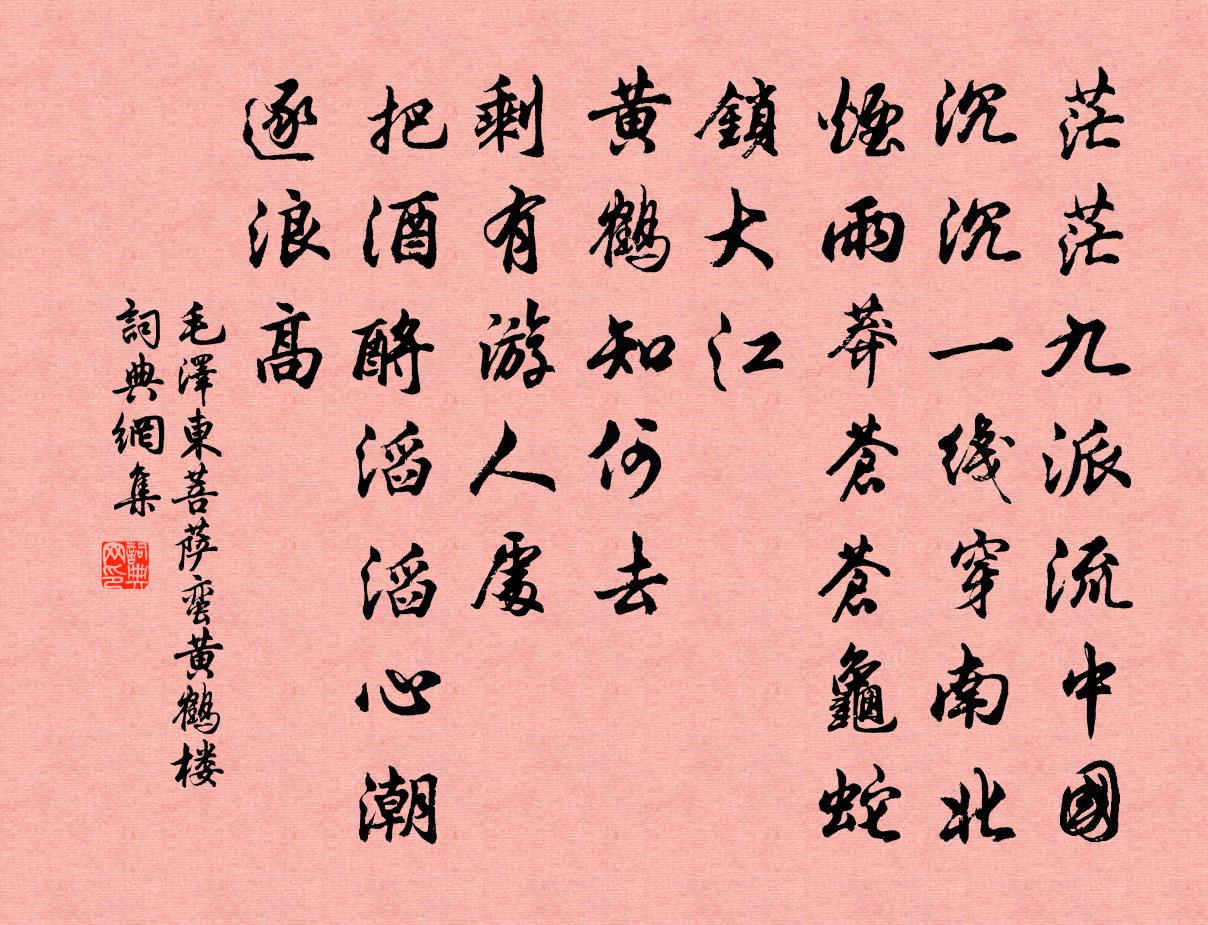 茫茫九派流中國
沉沉一线穿南北
煙雨莽蒼蒼龜蛇
鎖大江
黄鶴知何去
剩有游人處
把酒酹滔滔心潮
逐浪高
毛澤東菩萨蛮黄鶴楼
詞典網集
詞典网印